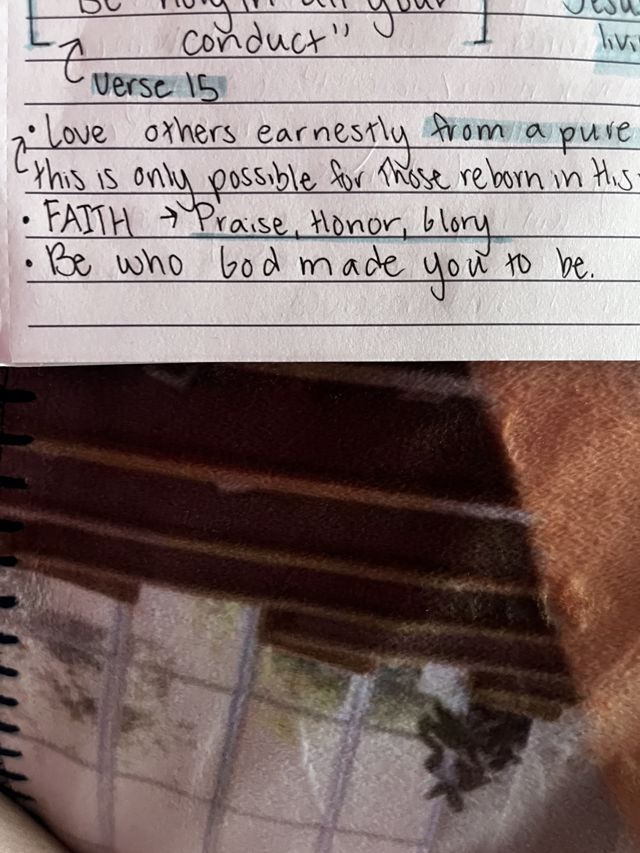 Be holy in all your
conduct" Jesu
verse 15 livi
• Love others earnestly from a pure
this is only possible for those reborn in His
• FAITH → Praise, Honor, Glory
• Be who God made you to be.